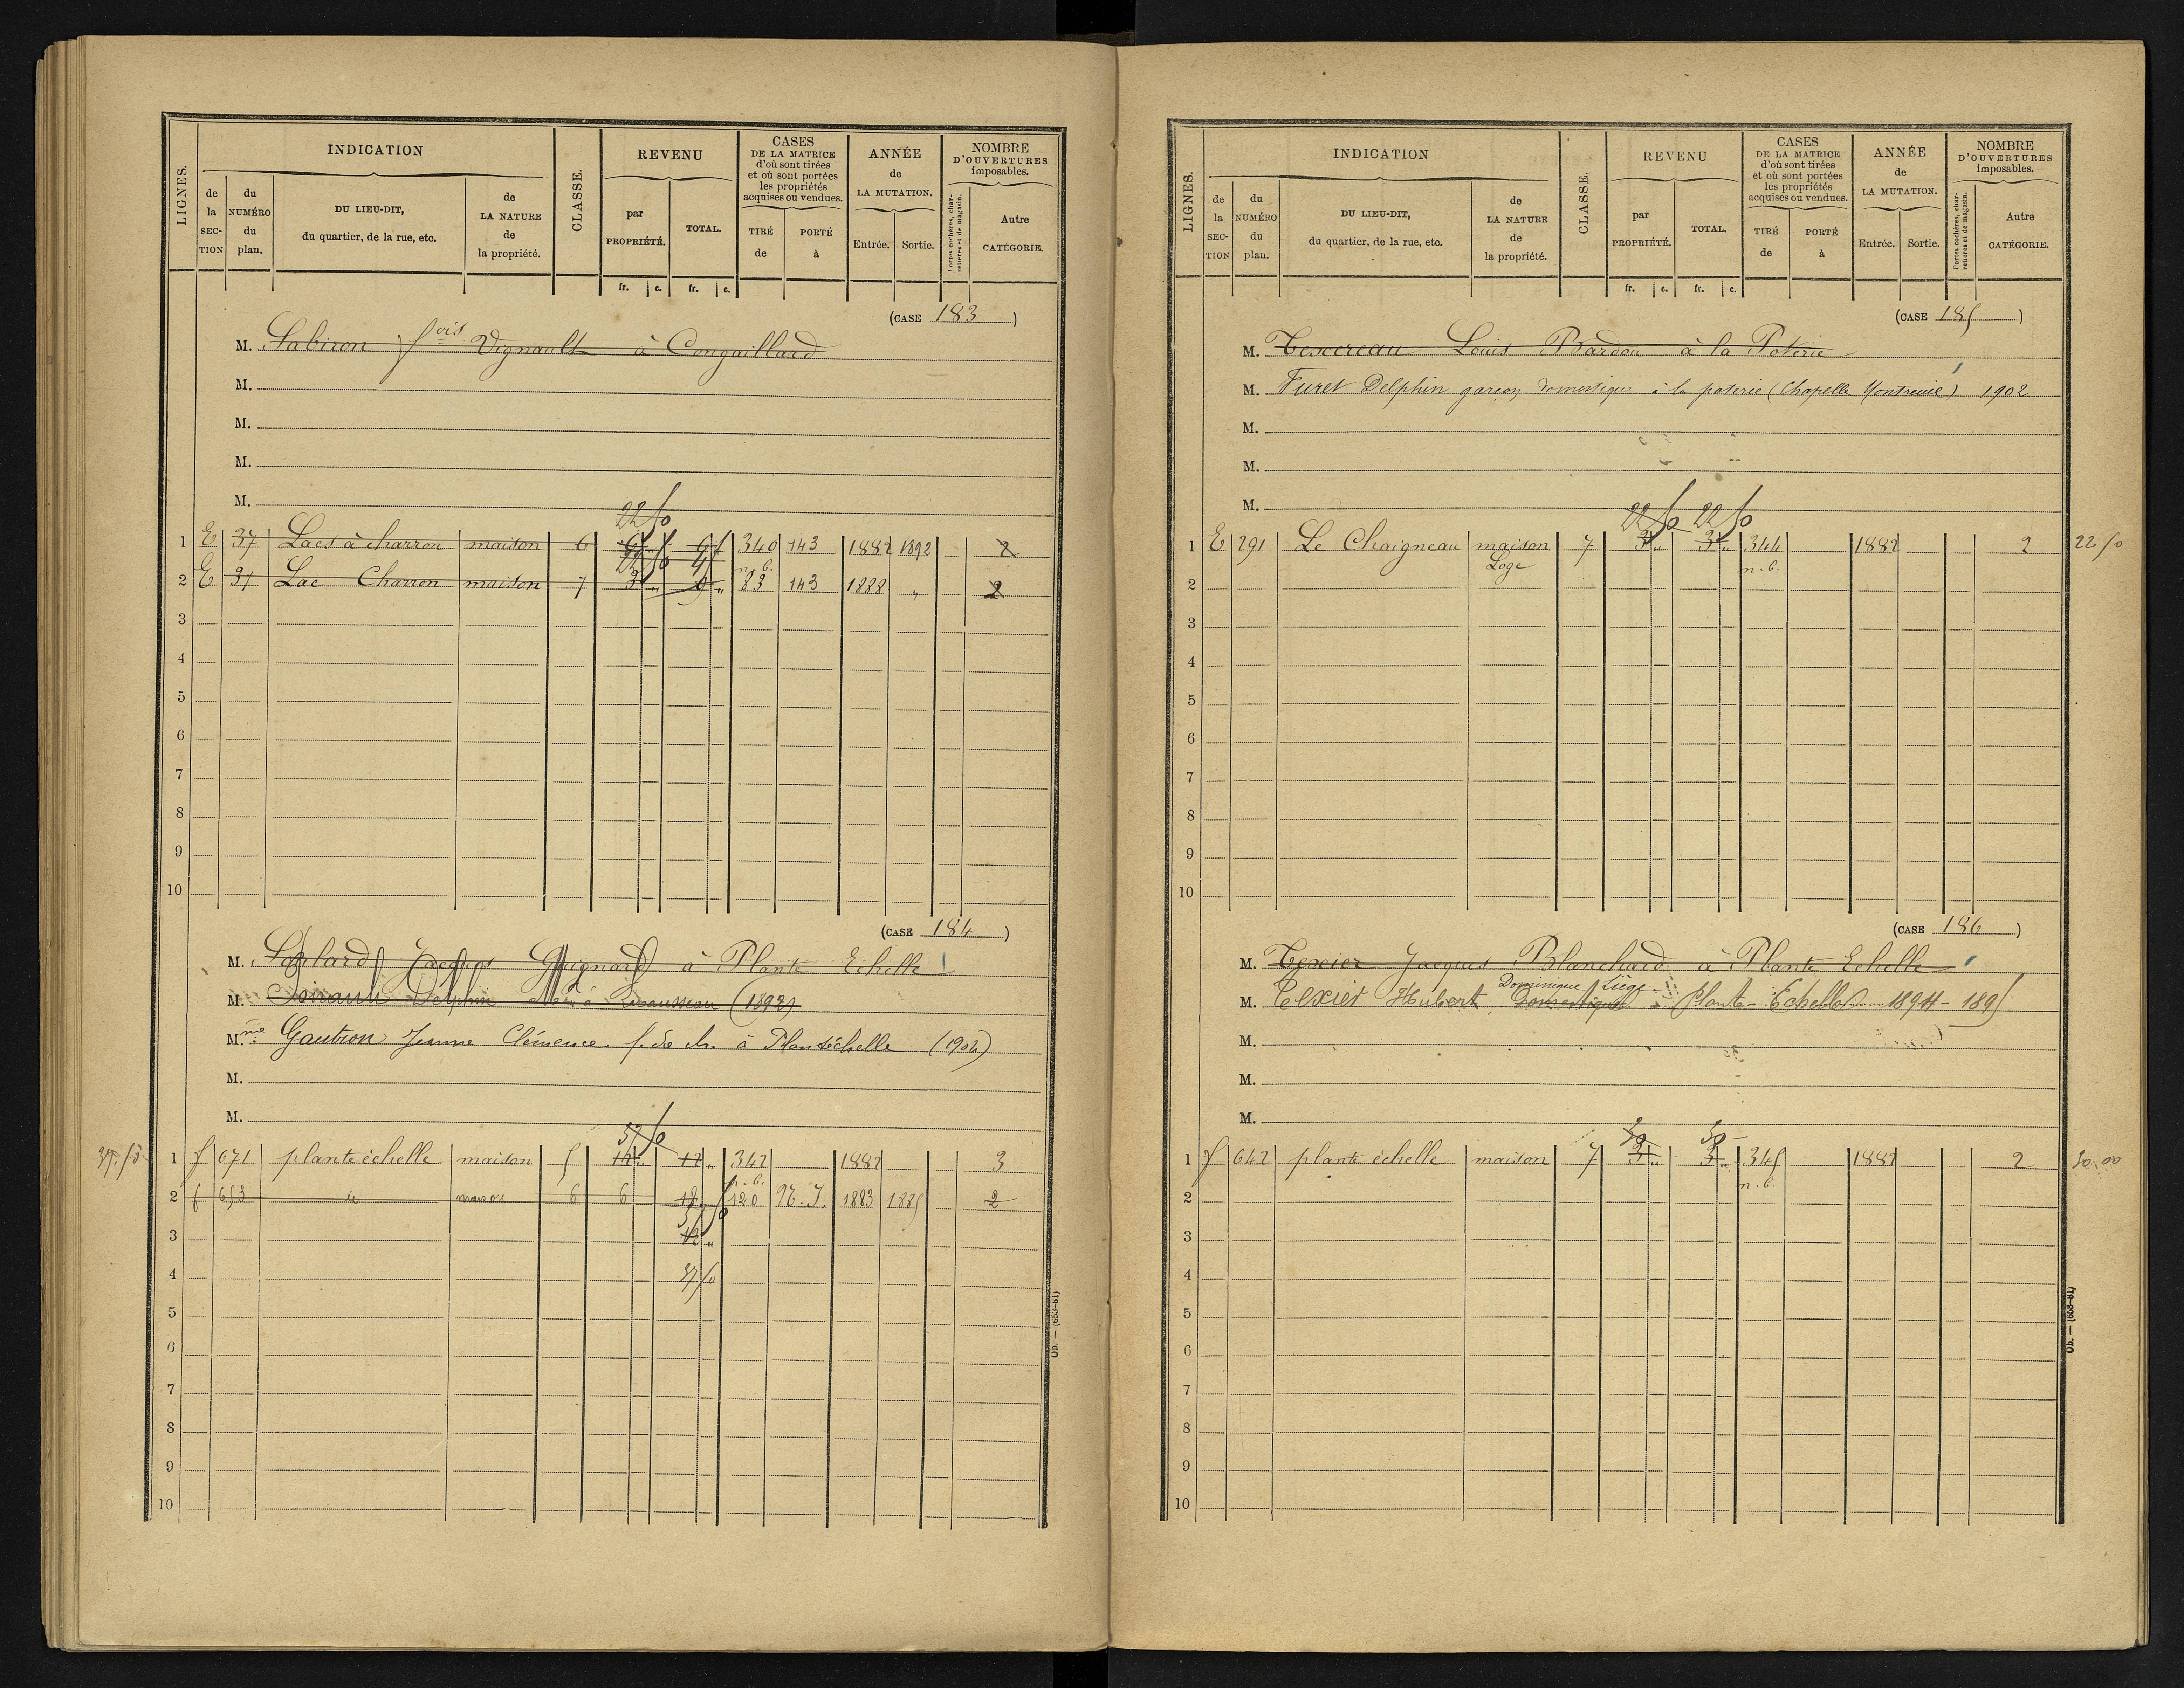 LIGNES.
INDICATION
de la SECTION
du NUMÉRO du plan.
DU LIEU-DIT, du quartier, de la rue, etc.
de LA NATURE de la propriété.
CLASSE.
REVENU
par PROPRIÉTÉ.
TOTAL.
fr. c. fr. c.
CASES DE LA MATRICE d'où sont tirées et où sont portées les propriétés acquises ou vendues.
TIRÉ de
PORTÉ à
ANNÉE de LA MUTATION.
Entrée. Sortie.
NOMBRE D'OUVERTURES imposables.
Portes cochères, charretières et de magasin.
Autre CATÉGORIE.
(CASE 183)
M. Sabiron fois Vignault à Congaillard
M.
M.
M.
M.
22 50
1 E 37 Lacs à charron maison 6 340 143 1882 1892 2
n. b.
2 E 31 Lac Charron maison 7 3 " 9 " 83 143 1888 " 2
3
4
5
6
7
8
9
10
(CASE 184)
M. Jacques Guignard à Plante Echelle
M. Delphin (1892)
Mme Gautron Jeanne Clémence f. de ch. à Plantéchelle (1902)
M.
M.
37 50
1 f 671 plante échelle maison 5 12 " 12 " 342 1882 3
n. b.
2 f 653 id maison 6 6 18 120 1883 1885 2
37 50
3 12 "
4 37 50
5
6
7
8
9
10
Ob. — (653-81)
LIGNES.
INDICATION
de la SECTION
du NUMÉRO du plan.
DU LIEU-DIT, du quartier, de la rue, etc.
de LA NATURE de la propriété.
CLASSE.
REVENU
par PROPRIÉTÉ.
TOTAL.
fr. c. fr. c.
CASES DE LA MATRICE d'où sont tirées et où sont portées les propriétés acquises ou vendues.
TIRÉ de
PORTÉ à
ANNÉE de LA MUTATION.
Entrée. Sortie.
NOMBRE D'OUVERTURES imposables.
Portes cochères, charretières et de magasin.
Autre CATÉGORIE.
(CASE 185)
M. Texereau Louis Bardou à la Poterie
M. Furet Delphin garçon domestique à la poterie (Chapelle Montreuil) 1902
M.
M.
M.
22 50 22 50
1 E 291 Le Chaigneau maison 7 3 " 3 " 344 1882 2 22.50
Loge n. b.
2
3
4
5
6
7
8
9
10
(CASE 186)
M. Texier Jacques Blanchard à Plante Echelle
Dominique Liège
M. Texier Hubert Domestique à Plante-Echelle 1894-1895
M.
M.
M.
30 30
1 f 642 plante échelle maison 7 3 " 3 " 345 1882 2 30.00
n. b.
2
3
4
5
6
7
8
9
10
Ob. — (653-81)